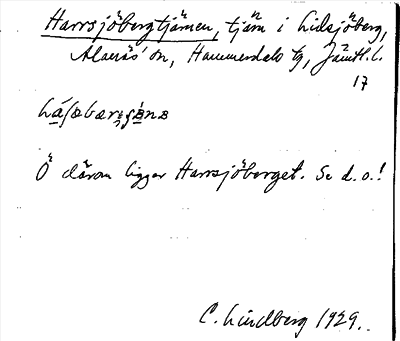 Harrsjöbergtjärnen, tjärn i Lidsjöberg,
Alanäs sn, Hammerdals tg, Jämtl. l.
17
Ö därom ligger Harrsjöberget. Se d. o.!
C. Lindberg 1929.